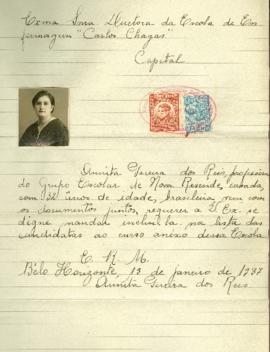 Exma Snra Directora da Escola de En
fermagem "Carlos Chagas"
Capital
Annita Pereira dos Reis, professora
do Grupo Escolar de Nova Rezende, casada,
com 32 annos de idade, brasileira, vem com
os documentos juntos, requerer a V. Ex. se
digne mandar incluil-a na lista das
candidatas ao curso anexo dessa Escola
E. R. M.
Bélo Horizonte, 13 de janeiro de 1937
Annita Pereira dos Reis.